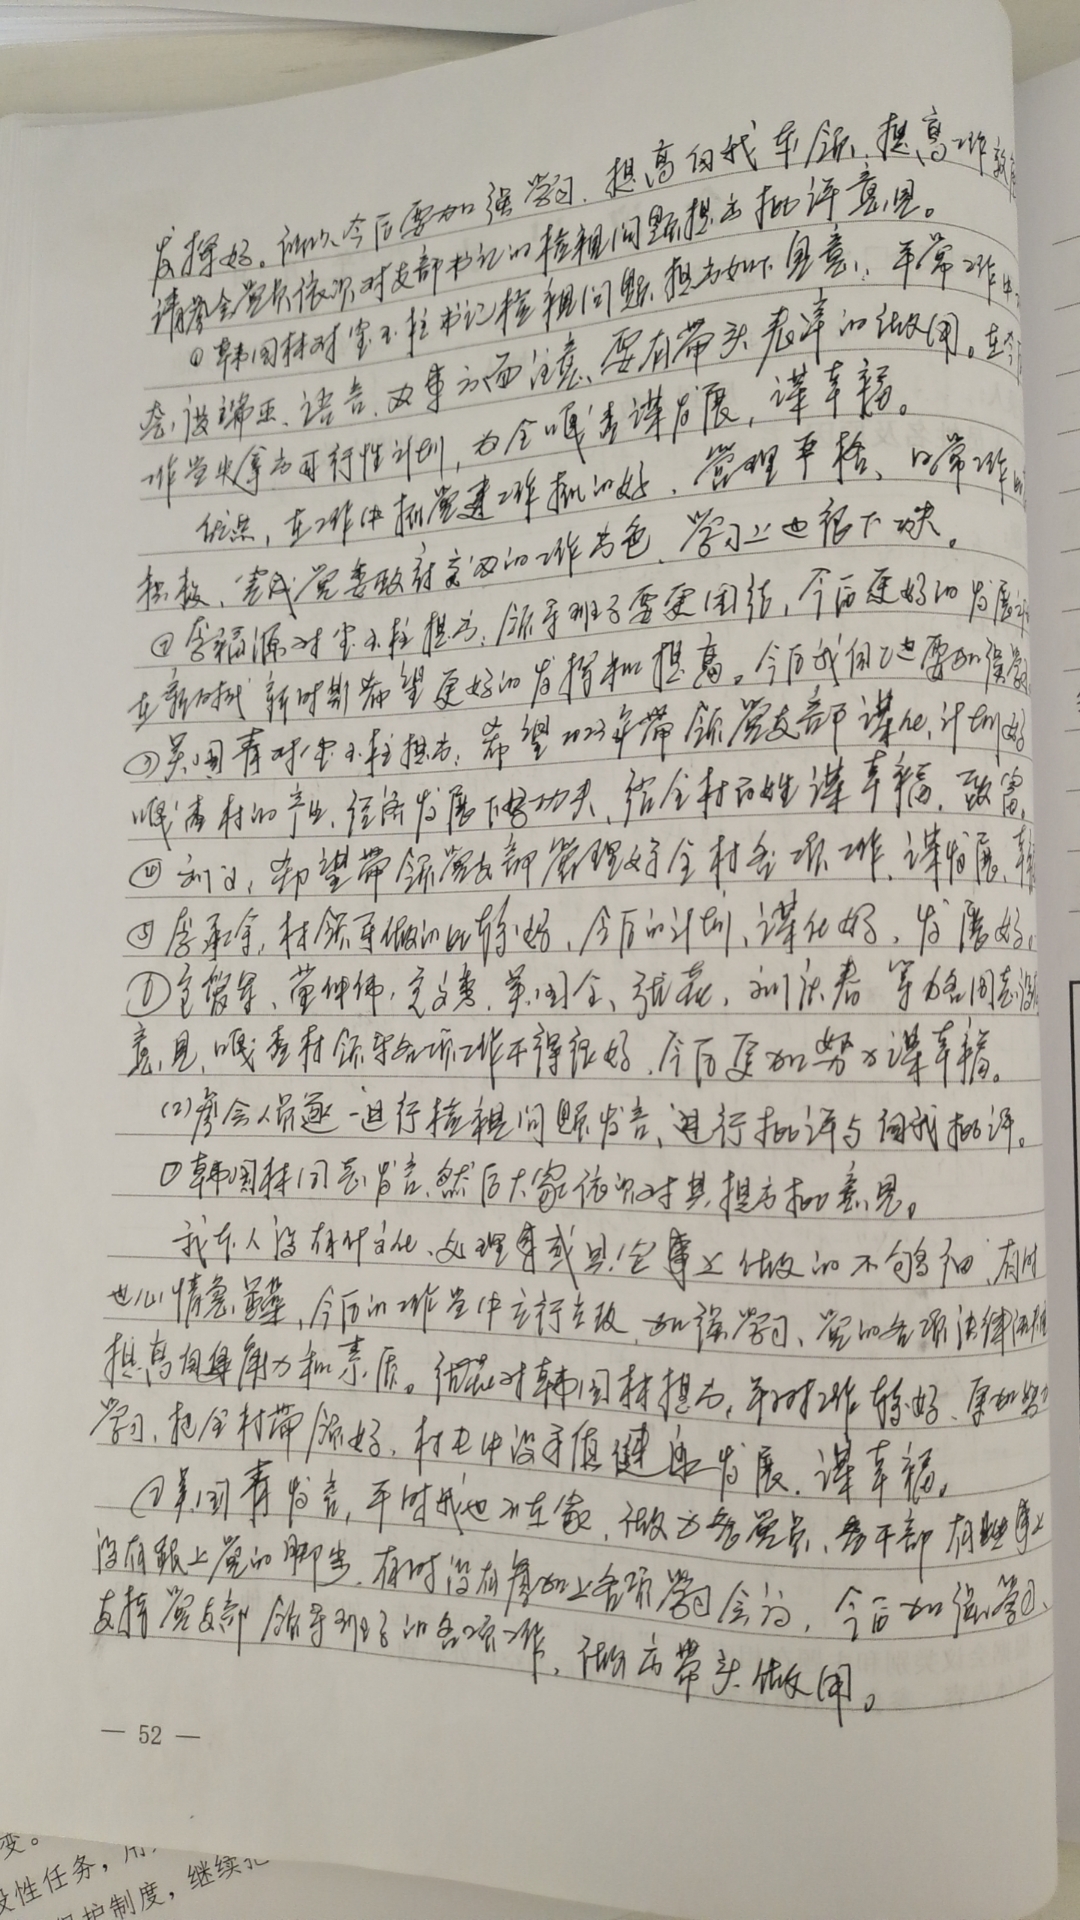 发挥好。所以今后要加强学习、提高自我本领、提高工作
请参会党员依次对支部书记的检视问题提出批评意见。
①韩国林对宝玉柱书记检视问题提出如下意见：平常工作中
态度端正、语言、办事方面注意、要有带头表率的做用。在今后
工作当中拿出可行性计划，为全嘎查谋发展，谋幸福。
优点，在工作中抓党建工作抓的好、管理严格、日常工作
积极、完成党委政府交办的工作出色、学习上也很下功夫。
②李福源对宝玉柱提出：领导班子要更团结，今后更好的发展
在新时代新时期希望更好的发挥和提高。今后我们也要加强学习
③吴国青对宝玉柱提出：希望2023年带领党支部谋化、计划好
嘎查村的产业、经济发展下苦功夫，给全村百姓谋幸福、致富。
④刘 ，希望带领党支部管理好全村各项工作、谋发展、幸福
⑤李 ，村领导做的比较好、今后的计划、谋化好、发展好。
意见，嘎查村领导各项工作干得很好、今后更加努力谋幸福。
(2)参会人员逐一进行检视问题发言、进行批评与自我批评。
①韩国林同志发言、然后大家依次对其提出批评意见。
我本人没有什文化、处理事或具体事上做的不够细、有时
也心情急躁，今后的工作当中立行立改、加强学习、党的各项法律法规
提高自身能力和素质。 对韩国林提出，平时工作较好、更加努力
学习、把全村带领好、 发展、谋幸福。
②吴国青发言，平时我也不在家、做为老党员、老干部有些事上
没有跟上党的脚步、有时没有参加上各项学习会议，今后加强学习、
支持党支部领导班子的各项工作，做出带头做用。
— 52 —
变。
性任务，
护制度，继续